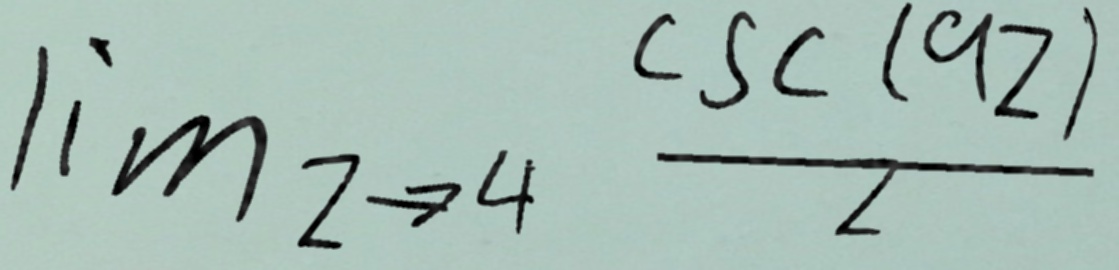 lim z→4 csc(9z)/z